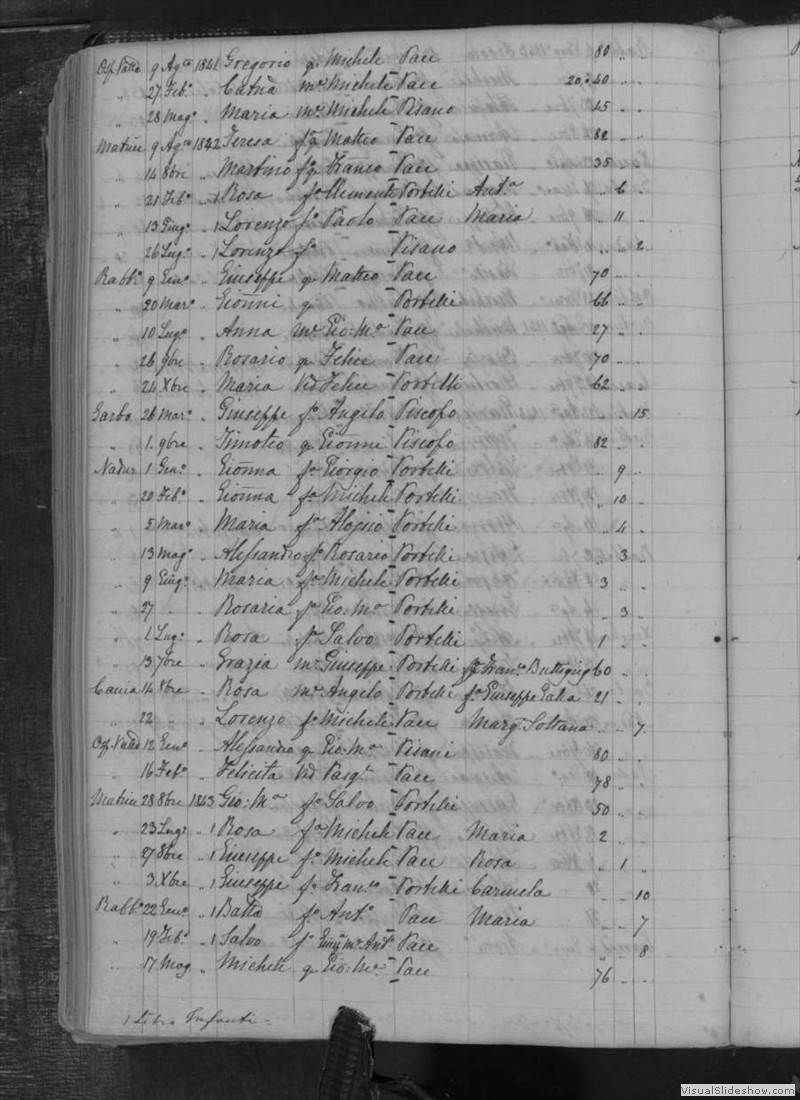 9 Ag.to 1841 Gregorio q. Michele Pace 80 " "
" 27 Feb.o " Cat.na m.e Michele Pace 40 " "
" 28 Mag.o " Maria m.e Michele Pisano 45 " "
Matrice 9 Ag.to 1842 Teresa Matteo Pace 82 " "
" 14 8bre " Martino Franco Pace 35 " "
" 21 Feb.o " 1 Rosa f.a Clemente Portelli Ant.a " 6 "
" 13 Giug.o " 1 Lorenzo f.o Paolo Pace Maria " 11 "
" 26 Lug.o " 1 Lorenzo f.o Pisano " " 2
Rabb.o 9 Gen.o " Giuseppe q. Matteo Pace 70 " "
" 20 Mar.o " Gionni q. Portelli 66 " "
" 10 Lug.o " Anna m.e Gio: M.a Pace 27 " "
" 26 9bre " Rosario q. Felice Pace 70 " "
" 24 Xbre " Maria Vid Felice Portelli 62 " "
Garbo 26 Mar.o " Giuseppe f.o Angelo Piscopo " " 15
" 1. 9bre " Timoteo q. Gionni Piscopo 82 " "
Nadur 1 Gen.o " Gionna f.a Giorgio Portelli " 9 "
" 20 Feb.o " Gionna f.a Michele Portelli " 10 "
" 5 Mar.o " Maria f.a Aloisio Portelli " 4 "
" 13 Mag.o " Alessandro f.o Rosario Portelli " 3 "
" 9 Giug.o " Maria f.a Michele Portelli 3 " "
" 27 " " Rosaria f.a Gio: M.a Portelli " 3 "
" 1 Lug.o " Rosa f.a Salvo Portelli 1 " "
" 13 7bre " Grazia m.e Giuseppe Portelli Fran.co Buttigieg 60 " "
14 8bre " Rosa m.e Angelo Portelli f.a Giuseppe Galea 21 " "
" 22 " " Lorenzo f.o Michele Pace Marg.a Soltana " " 7
12 Gen.o " Alessandro q. Gio: M.a Pisani 80 " "
" 16 Feb.o " Felicita Vid Pasq.e Pace 78 " "
Matrice 28 8bre 1843 Gio: M.a f.o Salvo Portelli 50 " "
" 23 Lug.o " 1 Rosa f.a Michele Pace Maria 2 " "
" 27 8bre " 1 Giuseppe f.o Michele Pace Rosa " 1 "
" 3 Xbre " 1 Giuseppe f.o Fran.co Portelli Carmela " " 10
Rabb.o 22 Gen.o " 1 Batta f.o Ant.o Pace Maria " " 7
" 19 Feb.o " 1 Salvo f.o Ant.a Pace " " 8
" 17 Mag " Michele q. Gio: M.a Pace 76 " "
1 Libro Infanti =
VisualSlideshow.com